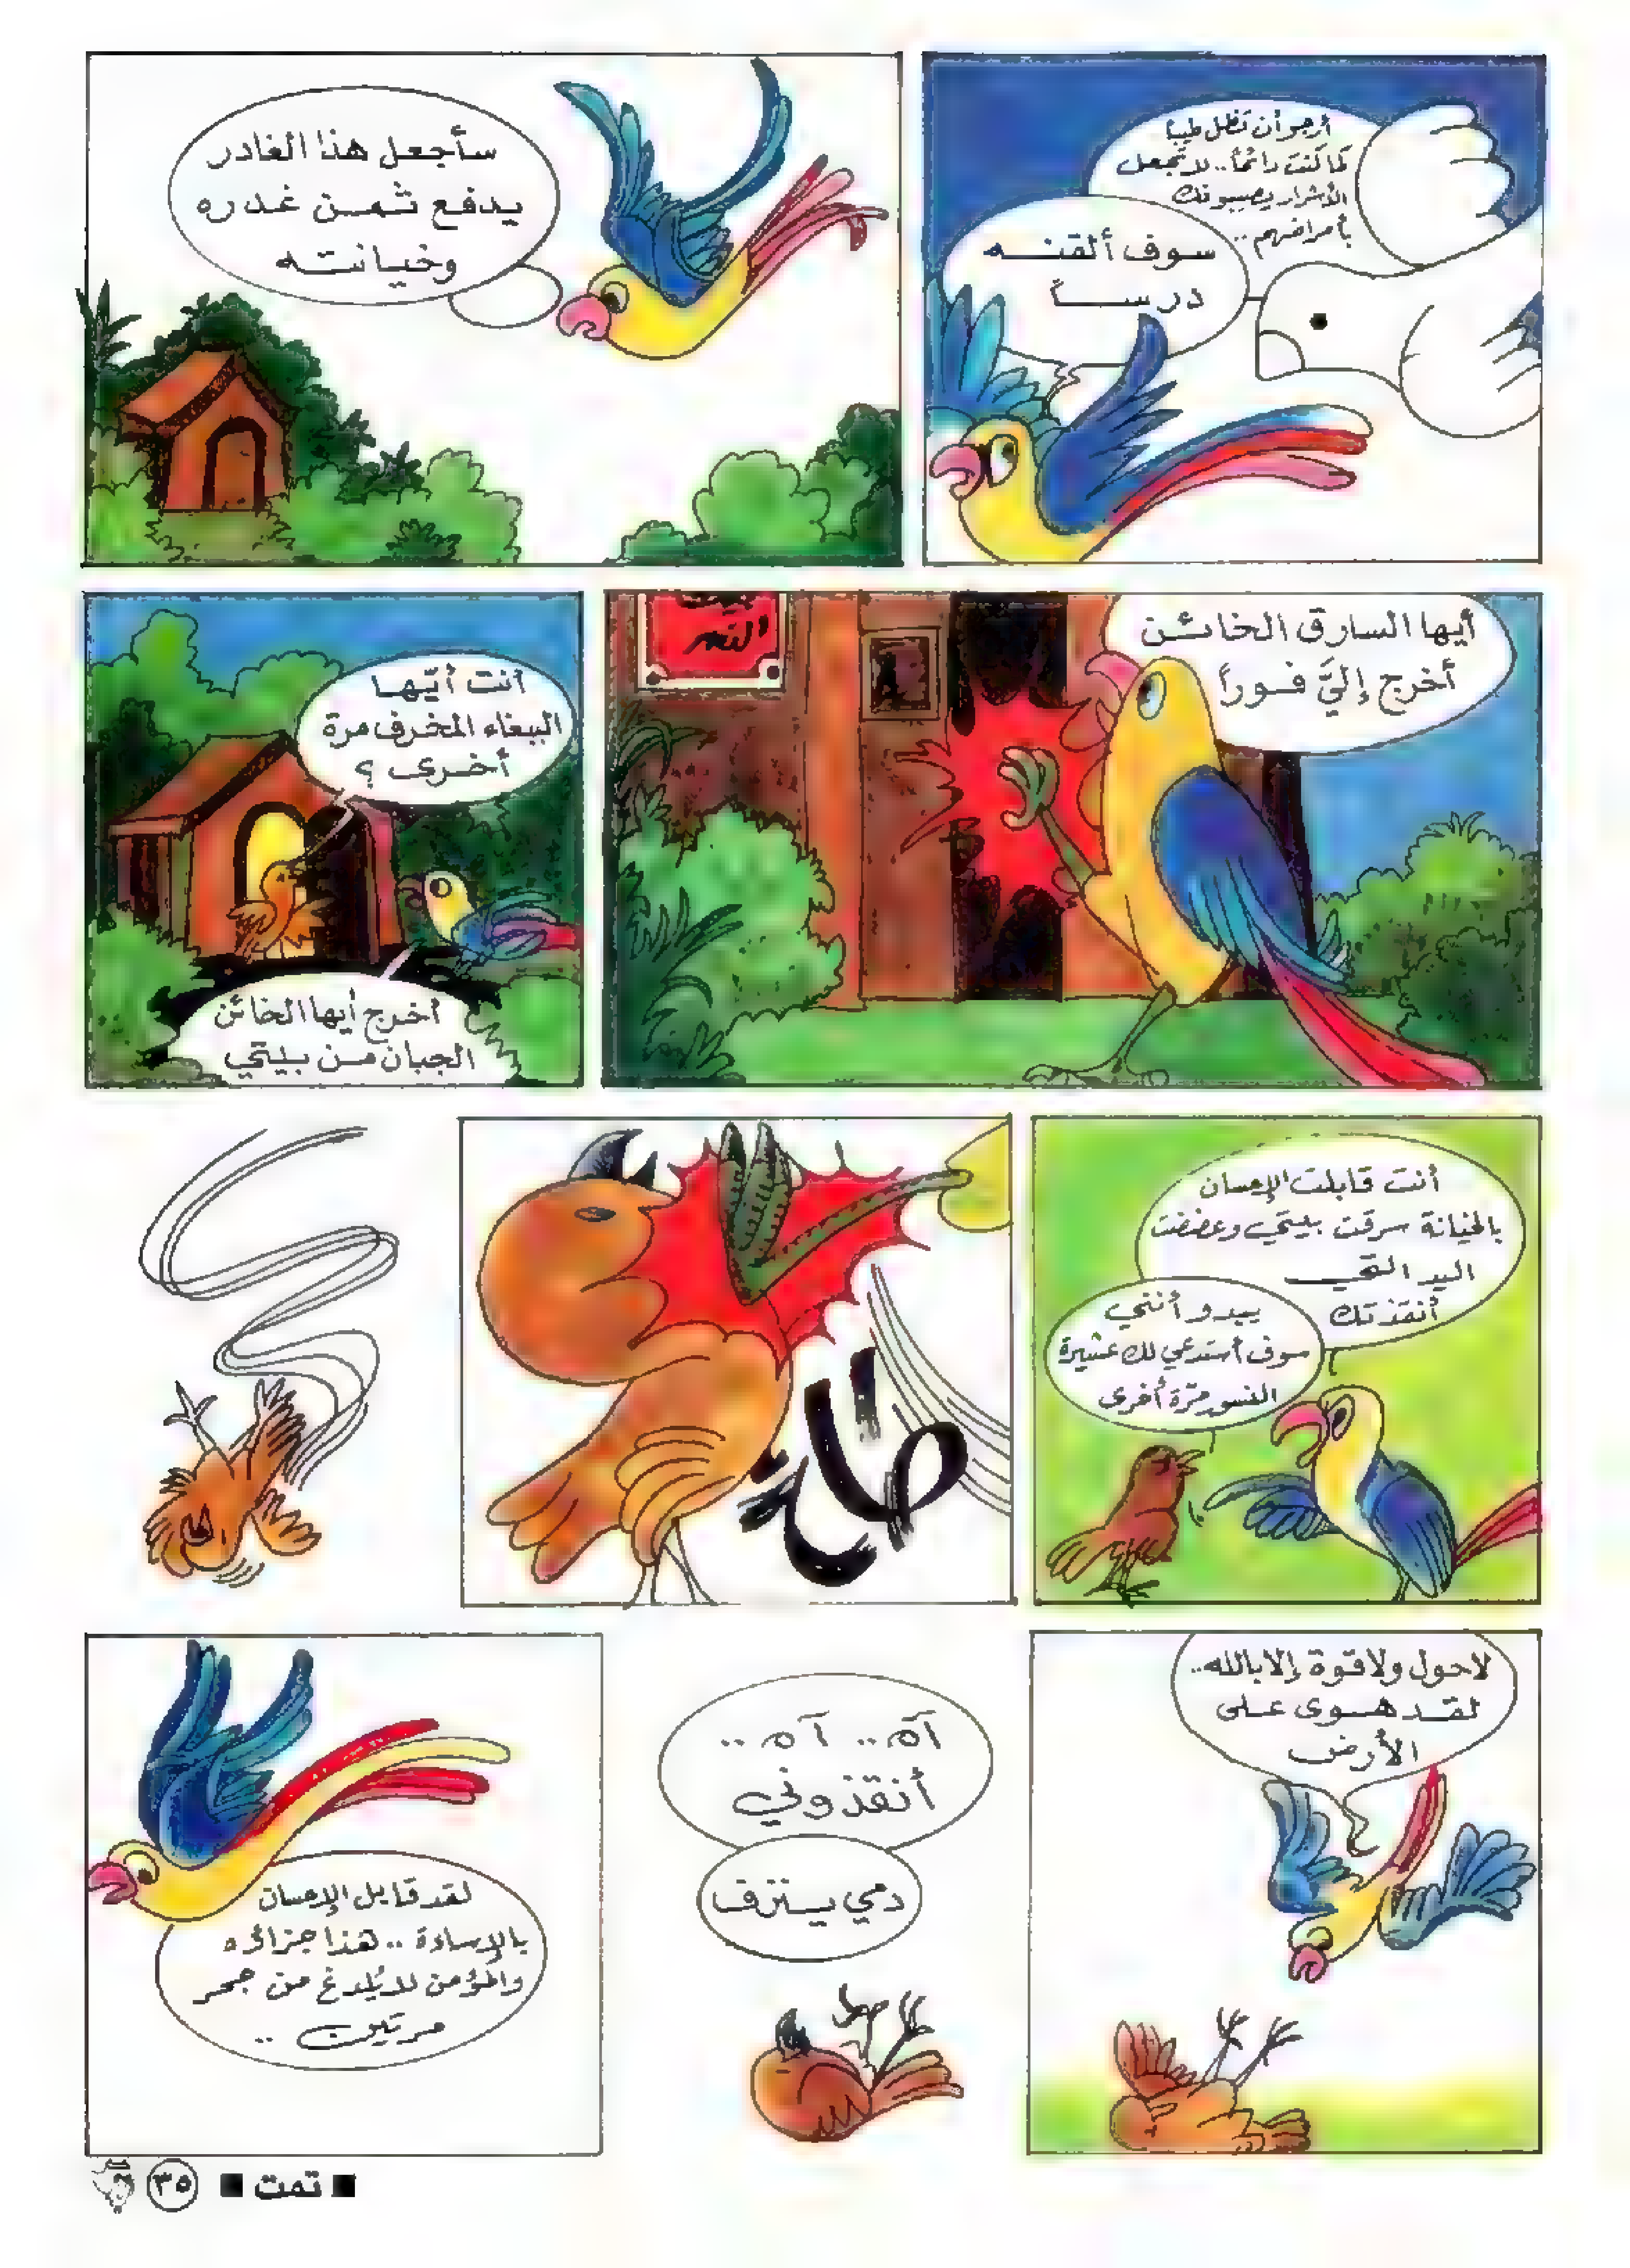 أرجو أن تظل طيباً
كما كنت دائماً.. لا تجعل
الأشرار يصيبونك
بأمراضهم..
سوف ألقنه
درساً
سأجعل هذا الغادر
يدفع ثمن غدره
وخيانته
أيها السارق الخائن
أخرج إليَّ فوراً
النسر
أنت أيّها
الببغاء المخرف مرة
أخرى ؟
أخرج أيها الخائن
الجبان من بيتي
أنت قابلت الإحسان
بالخيانة سرقت بيتي وعضضت
اليد التي
أنقذتك
يبدو أنني
سوف أستدعي لك عشيرة
النسور مرّة أخرى
طاخ
لاحول ولاقوة إلا بالله..
لقد هوى على
الأرض
آه.. آه..
أنقذوني
دمي ينزف
لقد قابل الإحسان
بالإساءة .. هذا جزاؤه
والمؤمن لا يُلدغ من جحر
مرتين ..
■ تمت ■ ٣٥